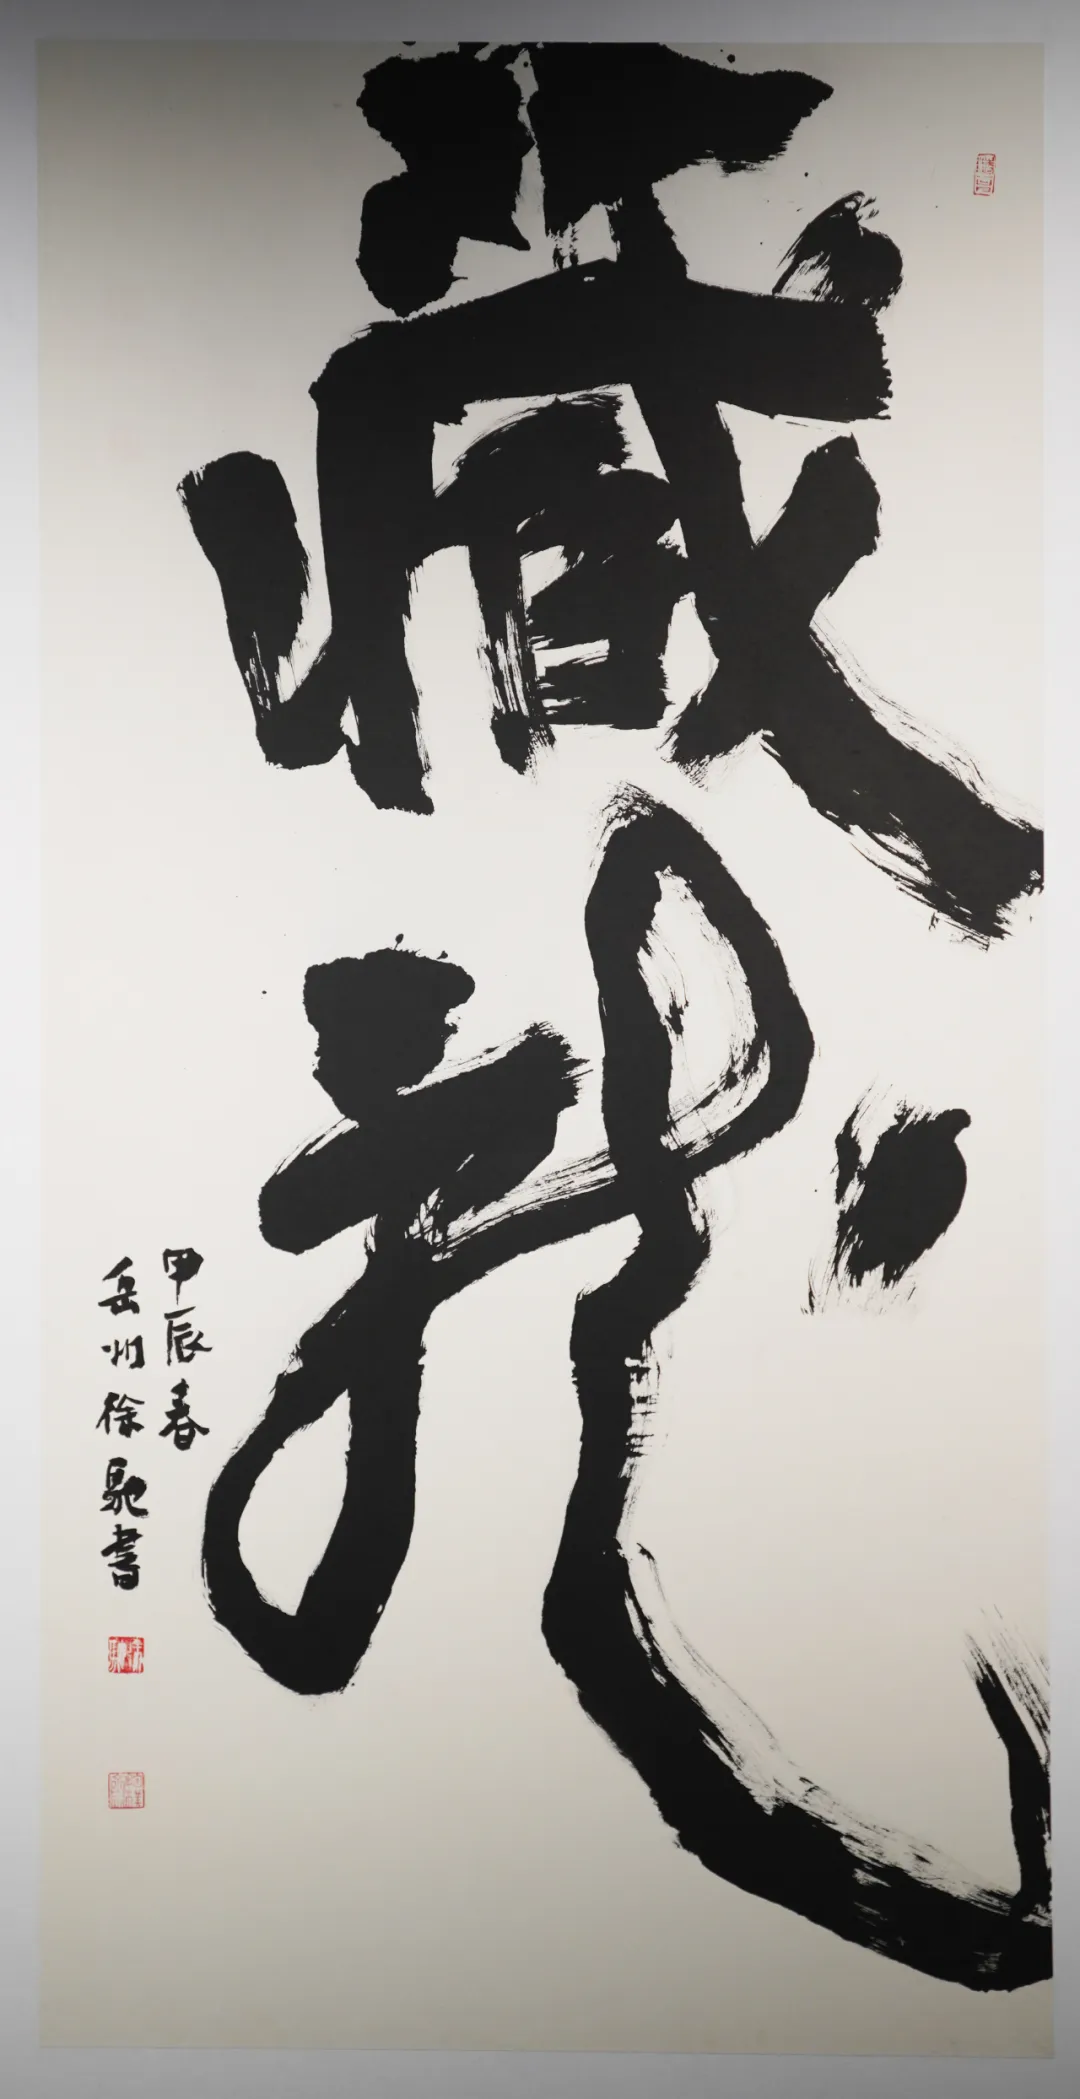 藏龙
甲辰春
岳州徐驰書